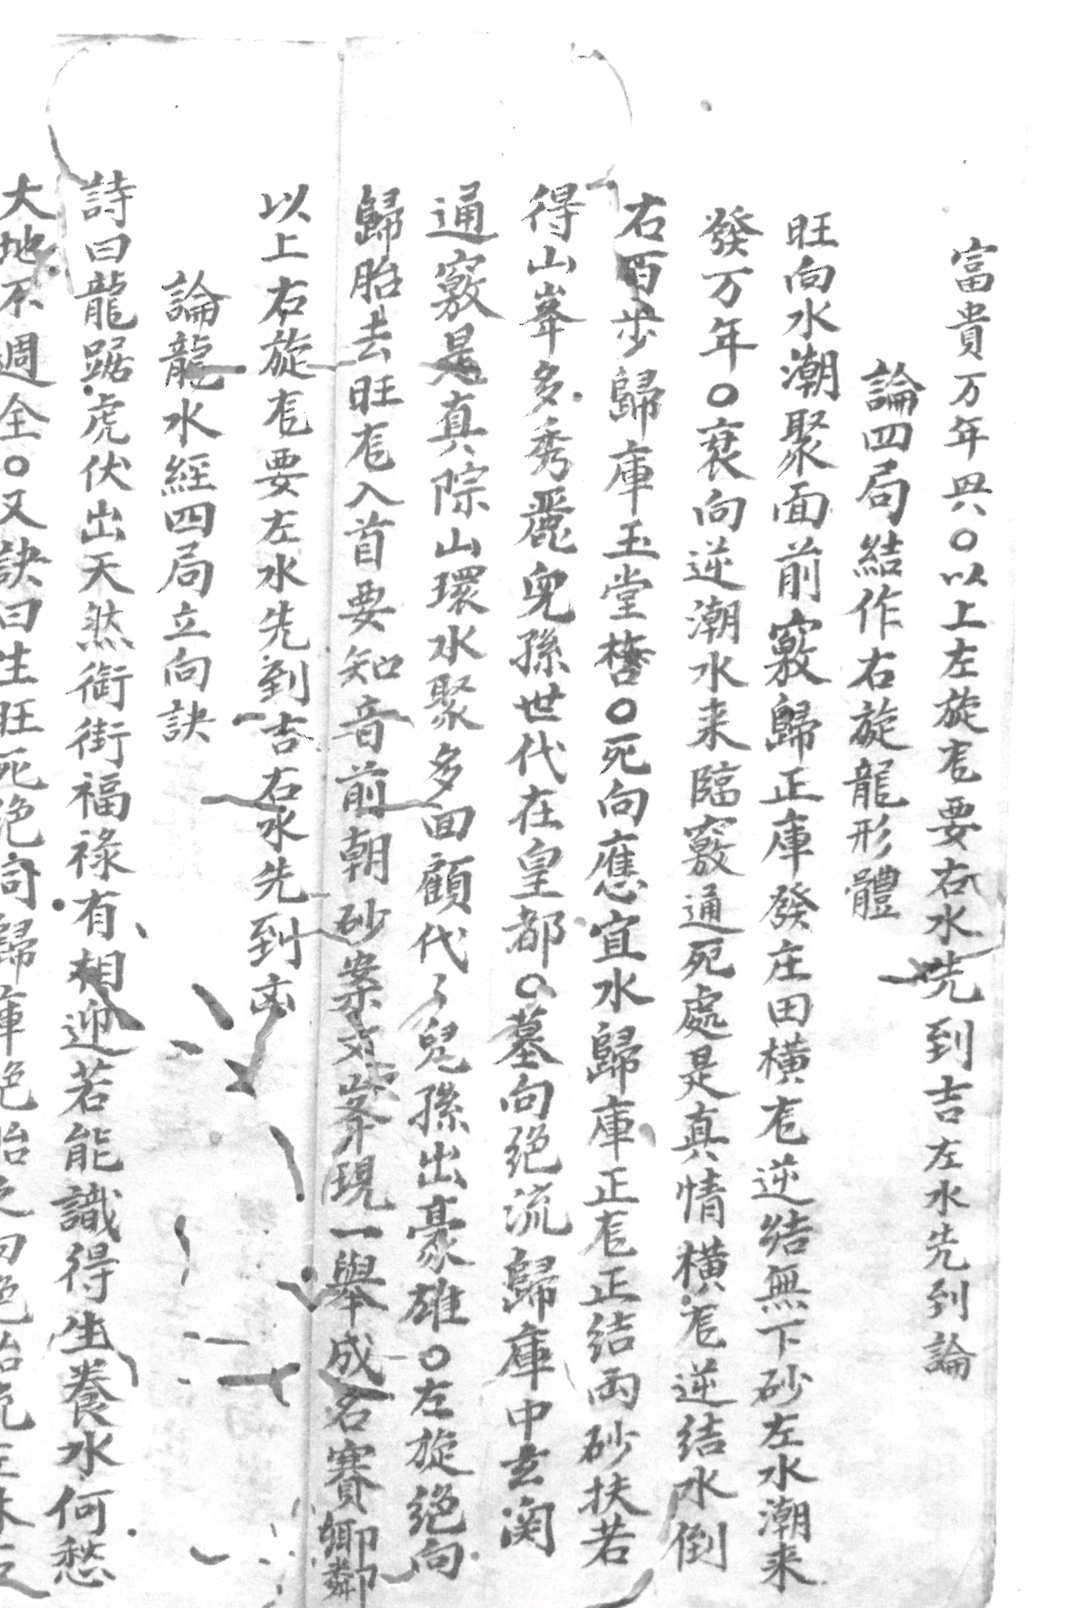 富貴万年興〇以上左旋龙要右水先到吉左水先到論
論四局結作右旋龍形體
旺向水潮聚面前竅歸正庫發庄田橫龙逆結無下砂左水潮来
發万年〇衰向逆潮水来臨竅通死處是真情橫龙逆結水倒
右百步歸庫玉堂〇死向應宜水歸庫正龙正结両砂扶若
得山峯多秀麗兒孫世代在皇都〇墓向绝流歸庫中玄関
通竅是真踪山環水聚多回顧代〻兒孫出豪雄〇左旋绝向
歸胎去旺龙入首要知音前朝砂案文峯現一舉成名賽鄉鄰
以上右旋龙要左水先到吉右水先到凶
論龍水經四局立向訣
詩曰龍踞虎伏出天然衙街福祿有相迎若能識得生養水何愁
大地不週全〇又訣曰生旺死绝向歸庫绝胎之向绝胎